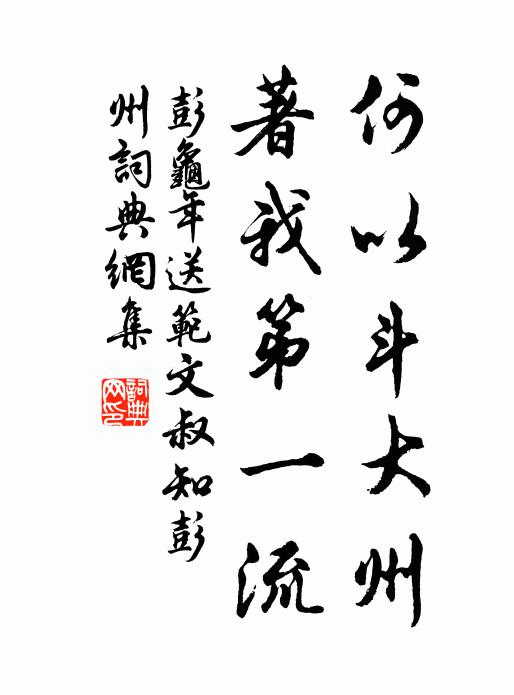 何以斗大州
著我第一流
彭龜年送範文叔知彭
州詞典網集
詞典
网印